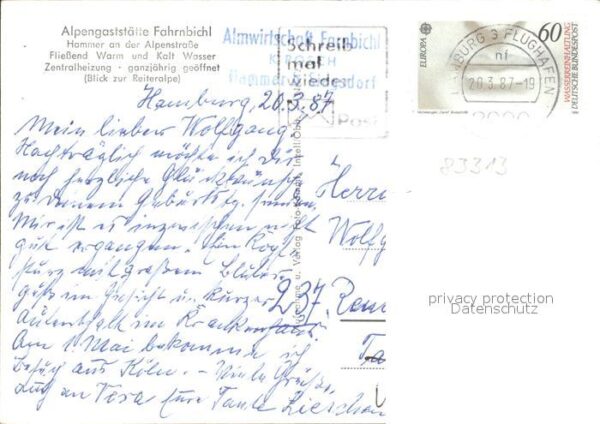 Alpengaststätte Fahrnbichl
Hammer an der Alpenstraße
Fließend Warm und Kalt Wasser
Zentralheizung · ganzjährig geöffnet
(Blick zur Reiteralpe)
Almwirtschaft Farnbichl
Hammer b. Siegsdorf
Schreib
mal
wieder
Post
EUROPA
60
WASSERREINHALTUNG
DEUTSCHE BUNDESPOST
HAMBURG 3 FLUGHAFEN
nf
20.3.87-19
83313
Hamburg, 20.3.87
Mein lieber Wolfgang.
Nachträglich möchte ich dir
noch herzliche Glückwünsche
zu deinem Geburtstg. senden.
Mir ist es inzwischen nicht
gut ergangen. Ein Kopf-
sturz mit großem Bluter-
guß im Gesicht u. kurzer
Aufenthalt im Krankenhaus.
Am 1. Mai bekomme ich
Besuch aus Köln. - Viele Grüße,
auch an Vera Eure Tante Lieschen
Herrn
Wolfg
237 Ren
privacy protection
Datenschutz